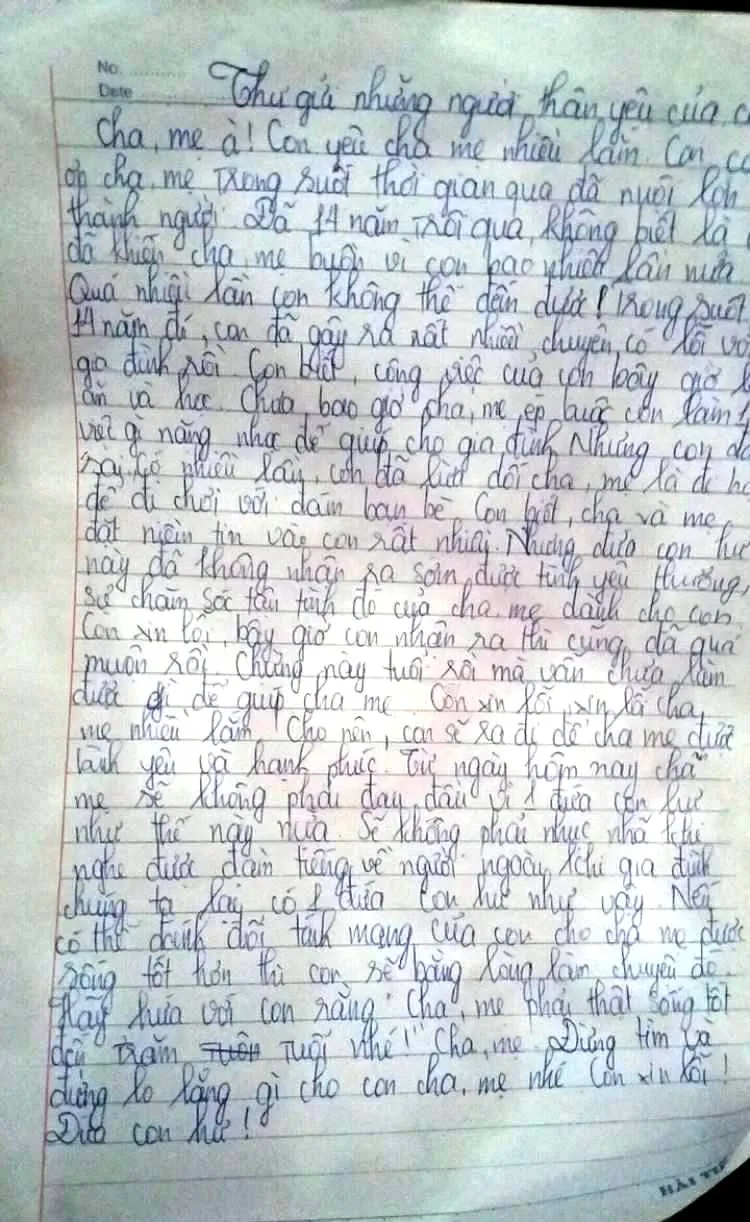 No
Date
Thư gửi những người thân yêu của c
Cha, mẹ à! Con yêu cha mẹ nhiều lắm. Con cả
ơn cha, mẹ trong suốt thời gian qua đã nuôi lớn
thành người. Đã 14 năm trôi qua, không biết là
đã khiến cha, mẹ buồn vì con bao nhiêu lần nữa
Quá nhiều lần con không thể đếm được! Trong suốt
14 năm đó, con đã gây ra rất nhiều chuyện có lỗi với
gia đình rồi. Con biết, công việc của con bây giờ l
ăn và học. Chưa bao giờ cha, mẹ ép buộc con làm 1
việc gì nặng nhọc để giúp cho gia đình. Nhưng con đã
sai. Có nhiều lần, con đã lừa dối cha, mẹ là đi họ
để đi chơi với đám bạn bè. Con biết, cha và mẹ
đặt niềm tin vào con rất nhiều. Nhưng đứa con hư
này đã không nhận ra sớm được tình yêu thương,
sự chăm sóc tận tình đó của cha mẹ dành cho con.
Con xin lỗi, bây giờ con nhận ra thì cũng đã quá
muộn rồi. Chừng này tuổi rồi mà vẫn chưa làm
được gì để giúp cha mẹ. Con xin lỗi, xin lỗi cha,
mẹ nhiều lắm. Cho nên, con sẽ ra đi để cha mẹ được
bình yên và hạnh phúc. Từ ngày hôm nay cha
mẹ sẽ không phải đau đầu vì 1 đứa con hư
như thế này nữa. Sẽ không phải nhục nhã khi
nghe được đàm tiếng về người ngoài khi gia đình
chúng ta lại có 1 đứa con hư như vậy. Nếu
có thể đánh đổi tính mạng của con cho cha mẹ được
sống tốt hơn thì con sẽ bằng lòng làm chuyện đó.
Hãy hứa với con rằng "Cha, mẹ phải thật sống tốt
đến trăm tuổi nhé!" Cha, mẹ. Đừng tìm và
đừng lo lắng gì cho con cha, mẹ nhé. Con xin lỗi!
Đứa con hư!